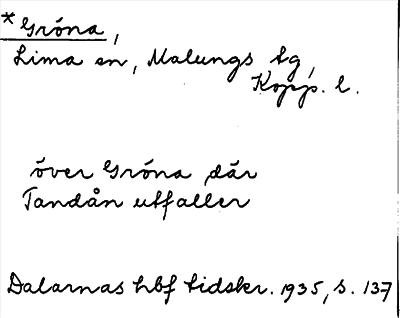 *Gróna,
Lima sn, Malungs tg,
Kopp. l.
över Gróna där
Tandån utfaller
Dalarnas hbf tidskr. 1935, s. 137